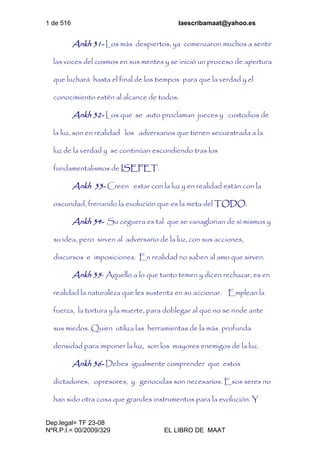 1 de 516
laescribamaat@yahoo.es
Ankh 31- Los más despiertos, ya comenzaron muchos a sentir
las voces del cosmos en sus mentes y se inició un proceso de apertura
que luchará hasta el final de los tiempos para que la verdad y el
conocimiento estén al alcance de todos.
Ankh 32- Los que se auto proclaman jueces y custodios de
la luz, son en realidad los adversarios que tienen secuestrada a la
luz de la verdad y se continúan escondiendo tras los
fundamentalismos de ISEFET.
Ankh 33- Creen estar con la luz y en realidad están con la
oscuridad, frenando la evolución que es la meta del TODO.
Ankh 34- Su ceguera es tal que se vanaglorian de sí mismos y
su idea, pero sirven al adversario de la luz, con sus acciones,
discursos e imposiciones. En realidad no saben al amo que sirven.
Ankh 35- Aquello a lo que tanto temen y dicen rechazar, es en
realidad la naturaleza que les sustenta en su accionar. Emplean la
fuerza, la tortura y la muerte, para doblegar al que no se rinde ante
sus miedos. Quien utiliza las herramientas de la más profunda
densidad para imponer la luz, son los mayores enemigos de la luz.
Ankh 36- Debes igualmente comprender que estos
dictadores, opresores, y genocidas son necesarios. Esos seres no
han sido otra cosa que grandes instrumentos para la evolución. Y
Dep.legal= TF 23-08
NºR.P.I.= 00/2009/329
EL LIBRO DE MAAT